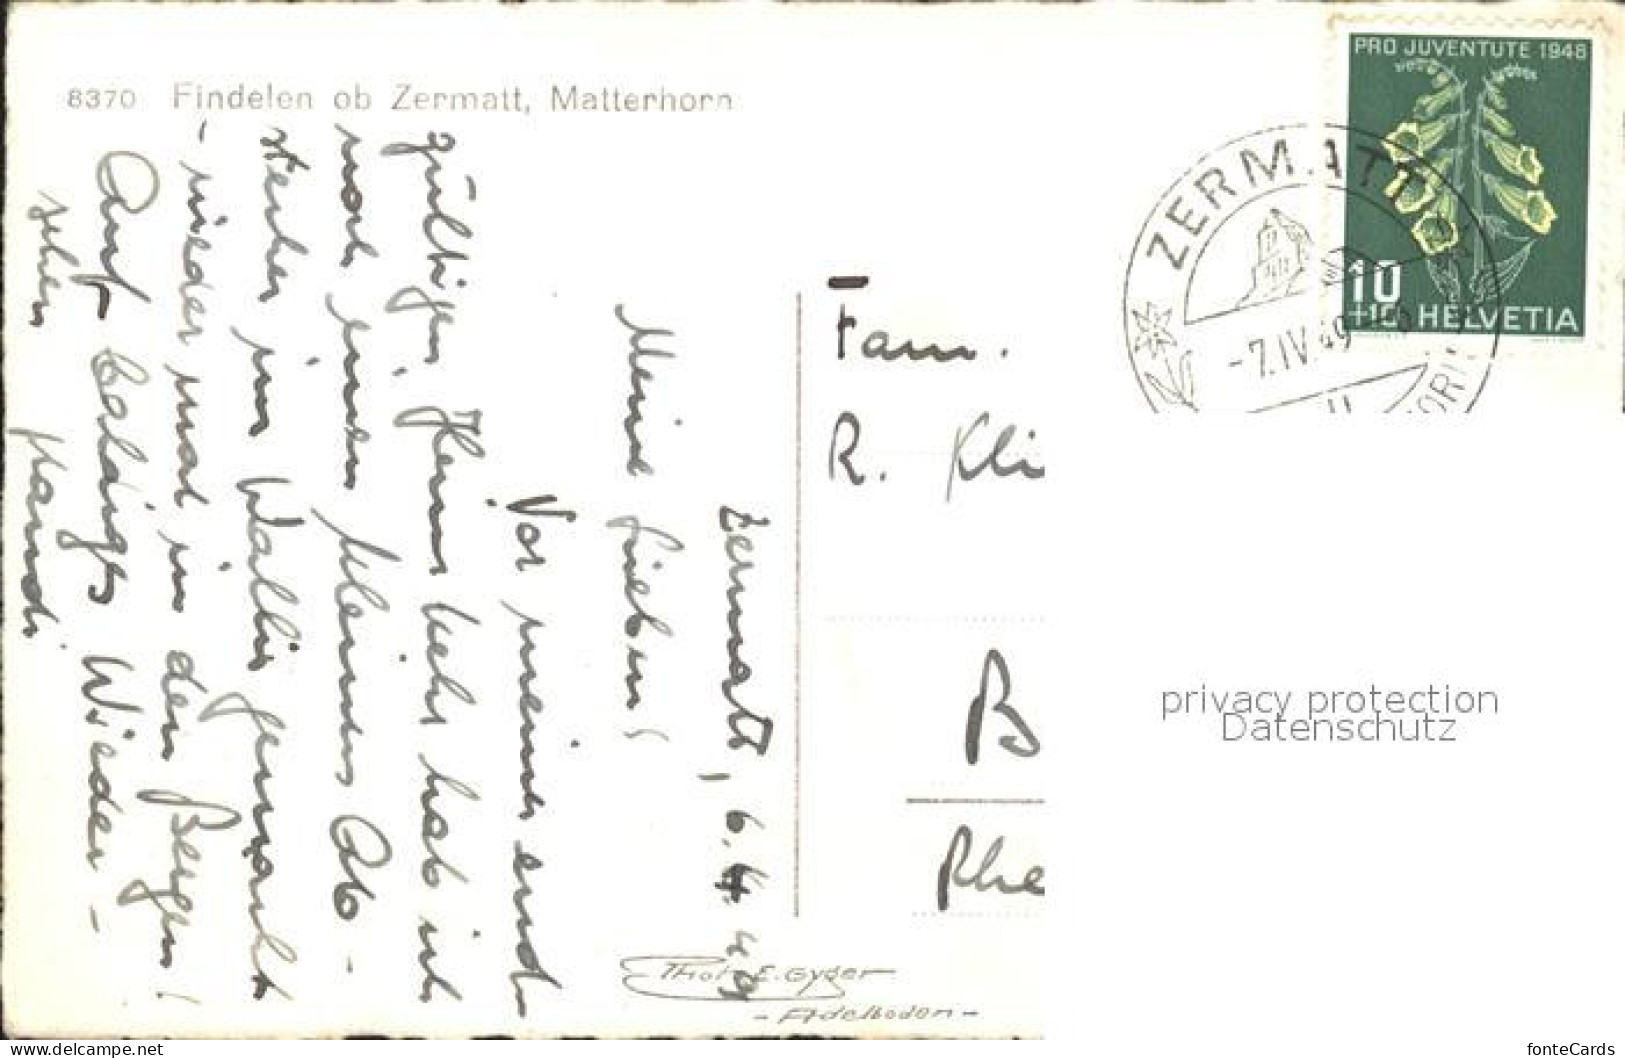 8370 Findelen ob Zermatt, Matterhorn
Zermatt, 6. 4. 49
Meine Lieben!
Vor meiner end-
gültigen Heimkehr hab ich
noch einen kleinen Ab-
stecher ins Wallis gemacht
- wieder mal in den Bergen!
Auf baldiges Wieder-
sehen
Fam.
R. Kli
B
Rhe
PRO JUVENTUTE 1948
10
+10 HELVETIA
ZERMATT
-7.IV.49
Photo E. Gyger
- Adelboden -
privacy protection
Datenschutz
https://www.ansichtskarten-center.de
fonteCards